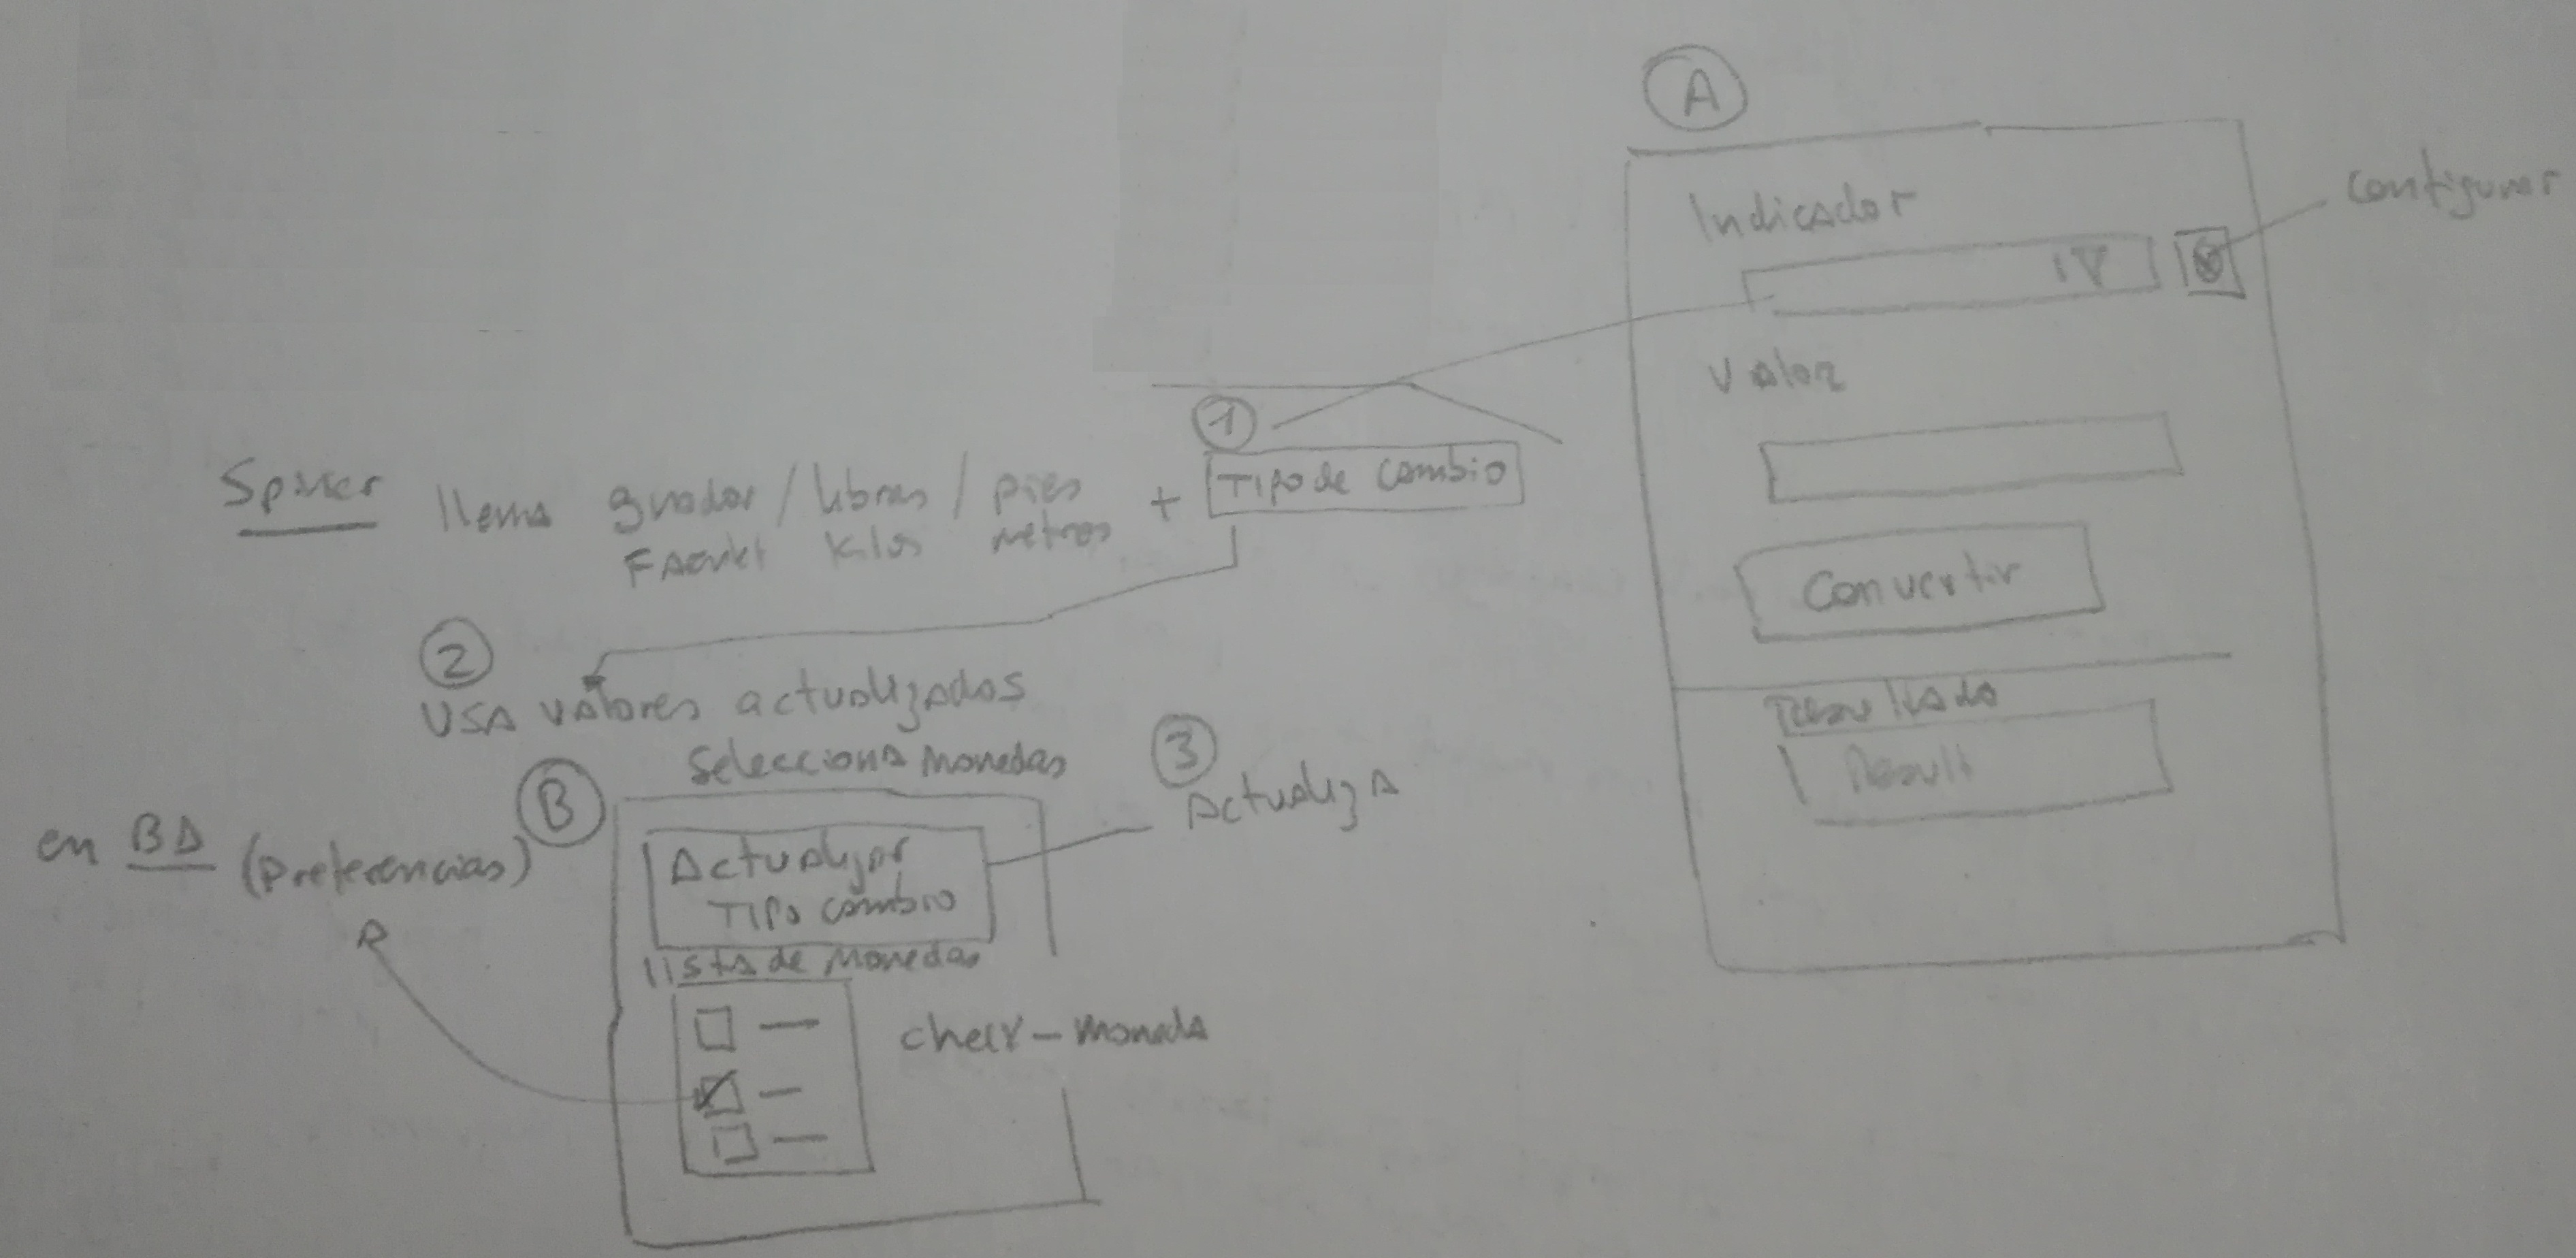 A
Indicador
Configurar
Valor
Convertir
Resultado
Result
1
Tipo de cambio
llena grados / libras / pies +
kilos metros
2
USA valores actualizados
Selecciona monedas
3
Actualiza
B
en BD (preferencias)
Actualizar
Tipo cambio
lista de monedas
check - moneda